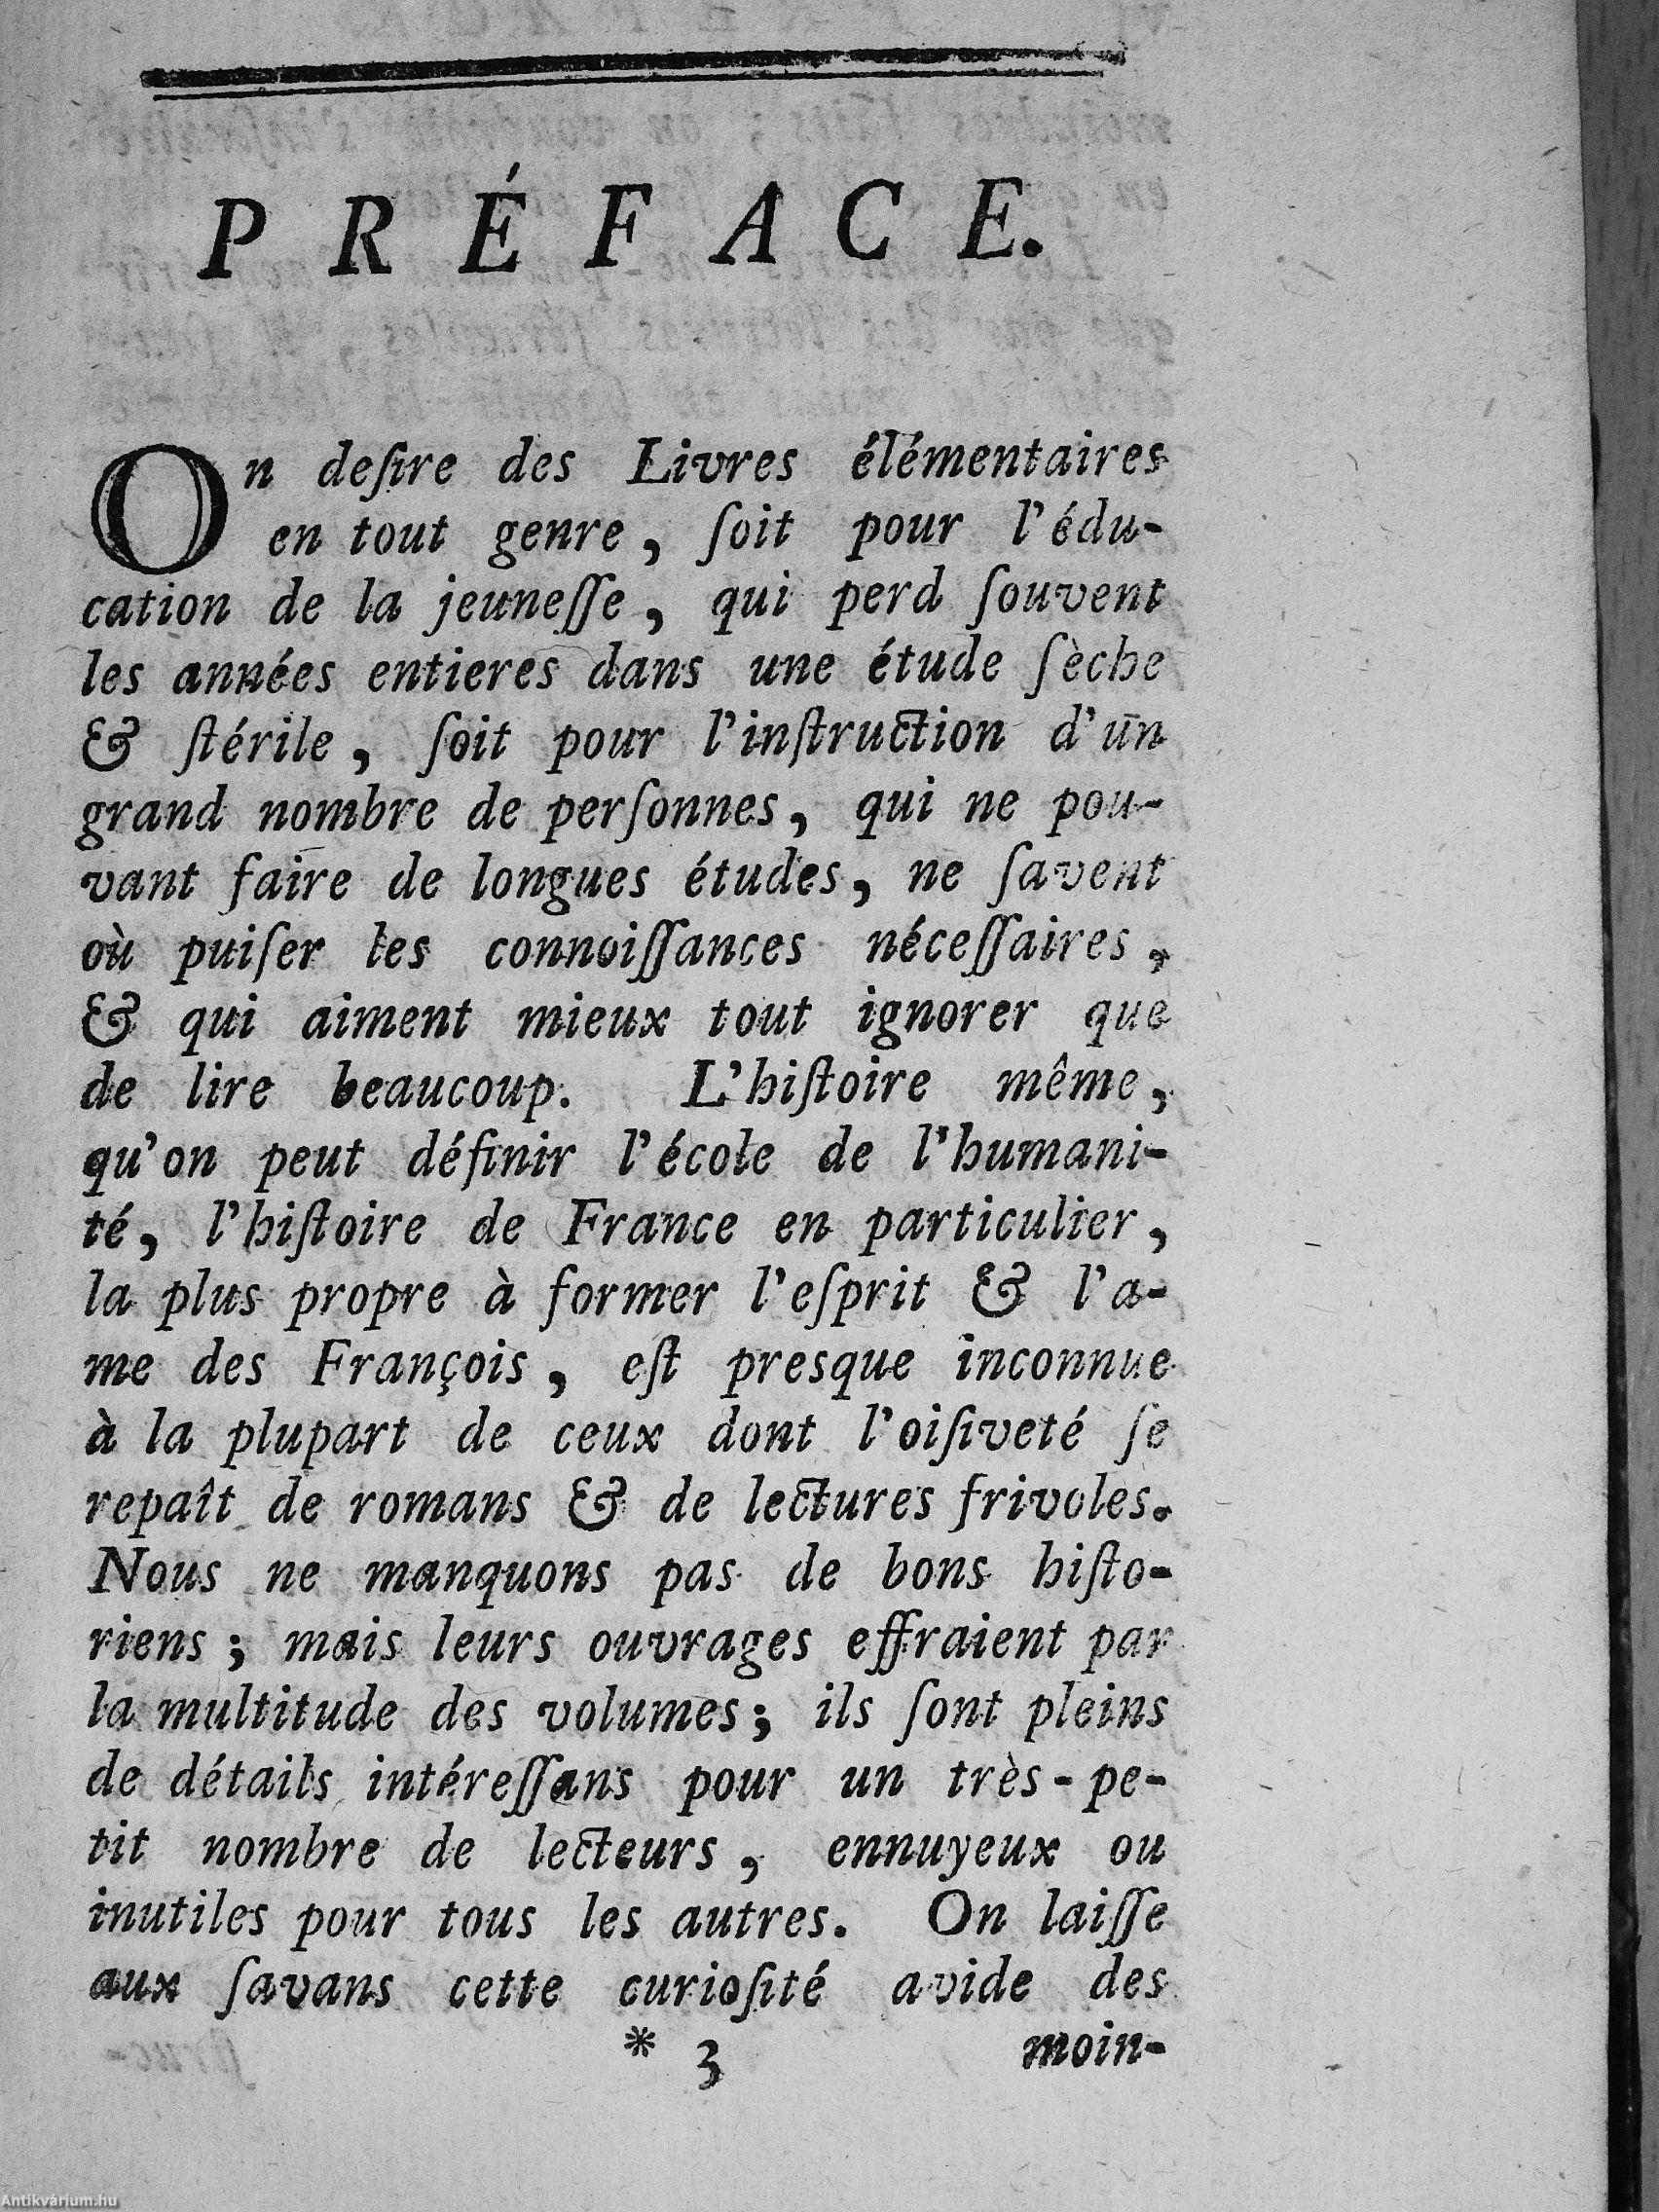 PRÉFACE.
On deſire des Livres élémentaires
en tout genre, ſoit pour l'édu-
cation de la jeuneſſe, qui perd ſouvent
les années entieres dans une étude ſèche
& ſtérile, ſoit pour l'inſtruction d'un
grand nombre de perſonnes, qui ne pou-
vant faire de longues études, ne ſavent
où puiſer les connoiſſances néceſſaires,
& qui aiment mieux tout ignorer que
de lire beaucoup. L'hiſtoire même,
qu'on peut définir l'école de l'humani-
té, l'hiſtoire de France en particulier,
la plus propre à former l'eſprit & l'a-
me des François, eſt presque inconnue
à la plupart de ceux dont l'oiſiveté ſe
repaît de romans & de lectures frivoles.
Nous ne manquons pas de bons hiſto-
riens; mais leurs ouvrages effraient par
la multitude des volumes; ils ſont pleins
de détails intéreſſans pour un très-pe-
tit nombre de lecteurs, ennuyeux ou
inutiles pour tous les autres. On laiſſe
aux ſavans cette curioſité avide des
* 3 moin-
Antikvárium.hu